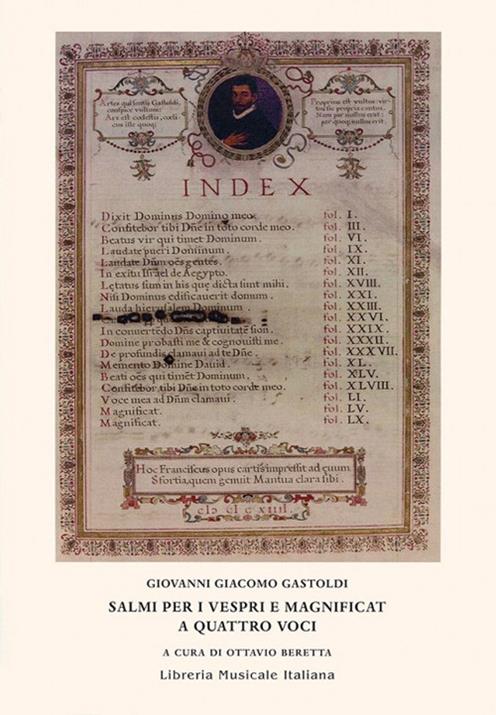 Artes qui sentis Gastoldi,
conspice vultum:
Ars est
ille quoq;
Proprius est vultus: vir-
propria cantus.
Nam par nullus erit:
par quoq; nullus erit.
INDEX
Dixit Dominus Domino meo. fol. I.
Confitebor tibi Dñe in toto corde meo. fol. III.
Beatus vir qui timet Dominum. fol. VI.
Laudate pueri Dominum. fol. IX.
Laudate Dñm oẽs gentes. fol. XI.
In exitu Israel de Aegypto. fol. XII.
Lętatus sum in his quę dicta sunt mihi. fol. XVIII.
Nisi Dominus edificauerit domum. fol. XXI.
Lauda hierusalem Dominum. fol. XXIII.
fol. XXVI.
In conuertẽdo Dñs captiuitatẽ sion. fol. XXIX.
Domine probasti me & cognouisti me. fol. XXXII.
De profundis clamaui ad te Dñe. fol. XXXVII.
Memento Domine Dauid. fol. XL.
Beati oẽs qui timẽt Dominum. fol. XLV.
Confitebor tibi Dñs in toto corde meo. fol. XLVIII.
Voce mea ad Dñm clamaui. fol. LI.
Magnificat. fol. LV.
Magnificat. fol. LX.
Hoc Franciscus opus cartis impressit ad ęuum
Sfortia, quem genuit Mantua clara sibi.
GIOVANNI GIACOMO GASTOLDI
SALMI PER I VESPRI E MAGNIFICAT
A QUATTRO VOCI
A CURA DI OTTAVIO BERETTA
Libreria Musicale Italiana